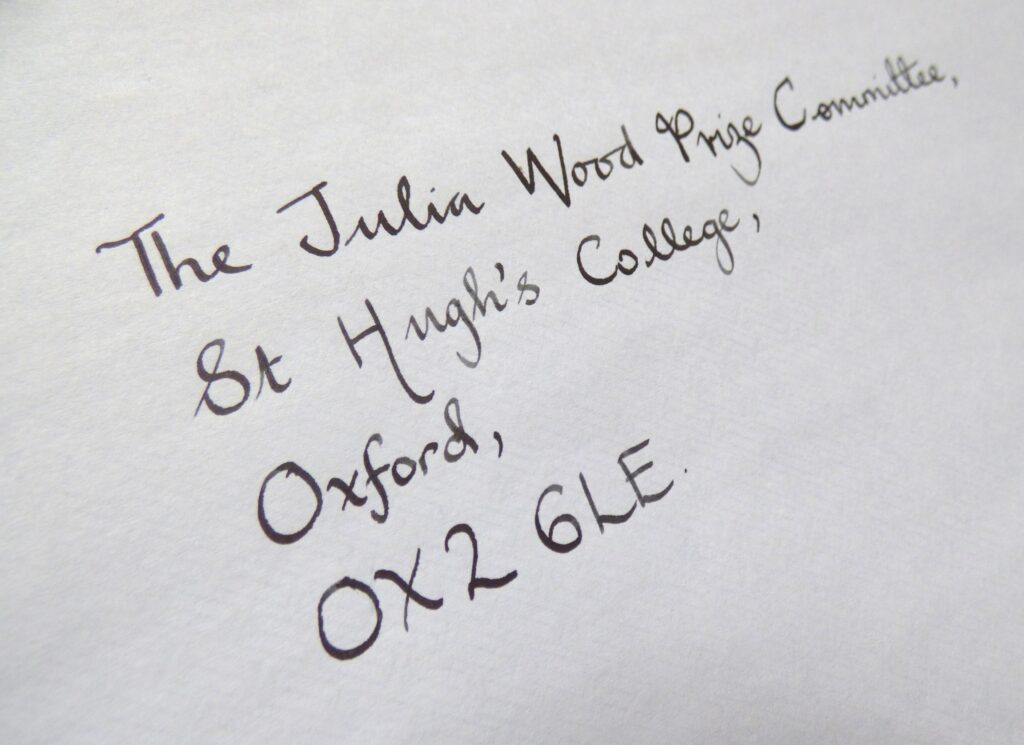 The Julia Wood Prize Committee,
St Hugh's College,
Oxford,
OX2 6LE.